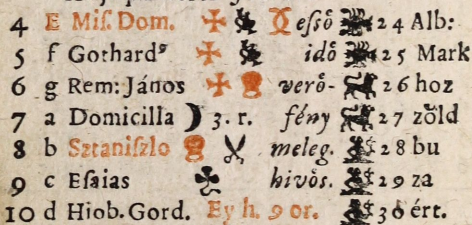 4 E Miſ. Dom. eſſő 24 Alb:
5 f Gothardꝰ idő 25 Mark
6 g Rem: János verő- 26 hoz
7 a Domicilla 3. r. fény 27 zőld
8 b Sztaniſzlo meleg. 28 bu
9 c Eſaias hivős. 29 za
10 d Hiob. Gord. Ey h. 9 or. 30 ért.